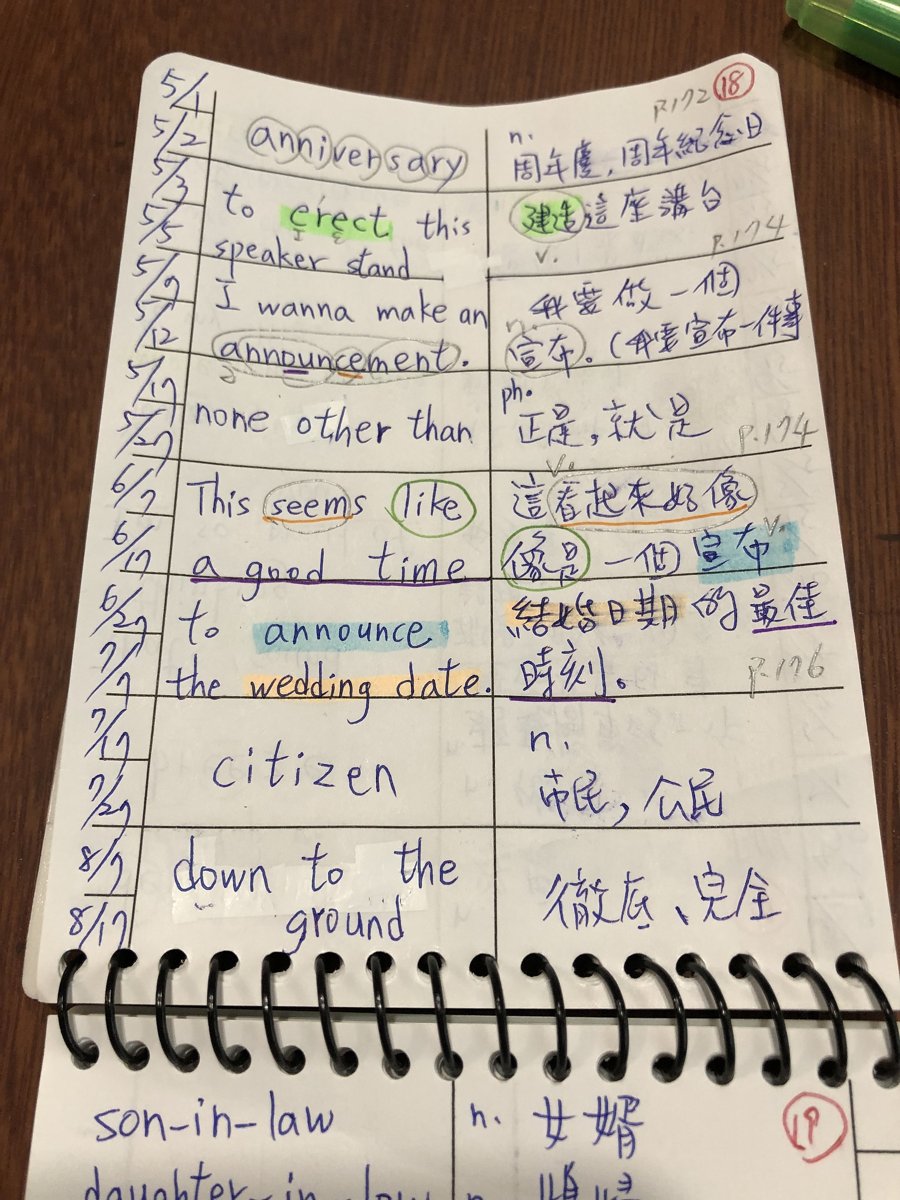 5/1
5/2
5/3
5/5
5/9
5/12
5/17
5/27
6/7
6/17
6/27
7/7
7/17
7/27
8/7
8/17
P.172 18
anniversary
n.
周年慶,周年紀念日
to erect this
speaker stand
建造這座講台
v.
P.174
I wanna make an
announcement.
我要做一個
n.
宣布。(我要宣布一件事
none other than
ph.
正是,就是
P.174
This seems like
a good time
to announce
the wedding date.
v.
這看起來好像
像是一個宣布 v.
結婚日期的最佳
時刻。
P.176
citizen
n.
市民,公民
down to the
ground
徹底、完全
son-in-law
n. 女婿
19
daughter-in-law